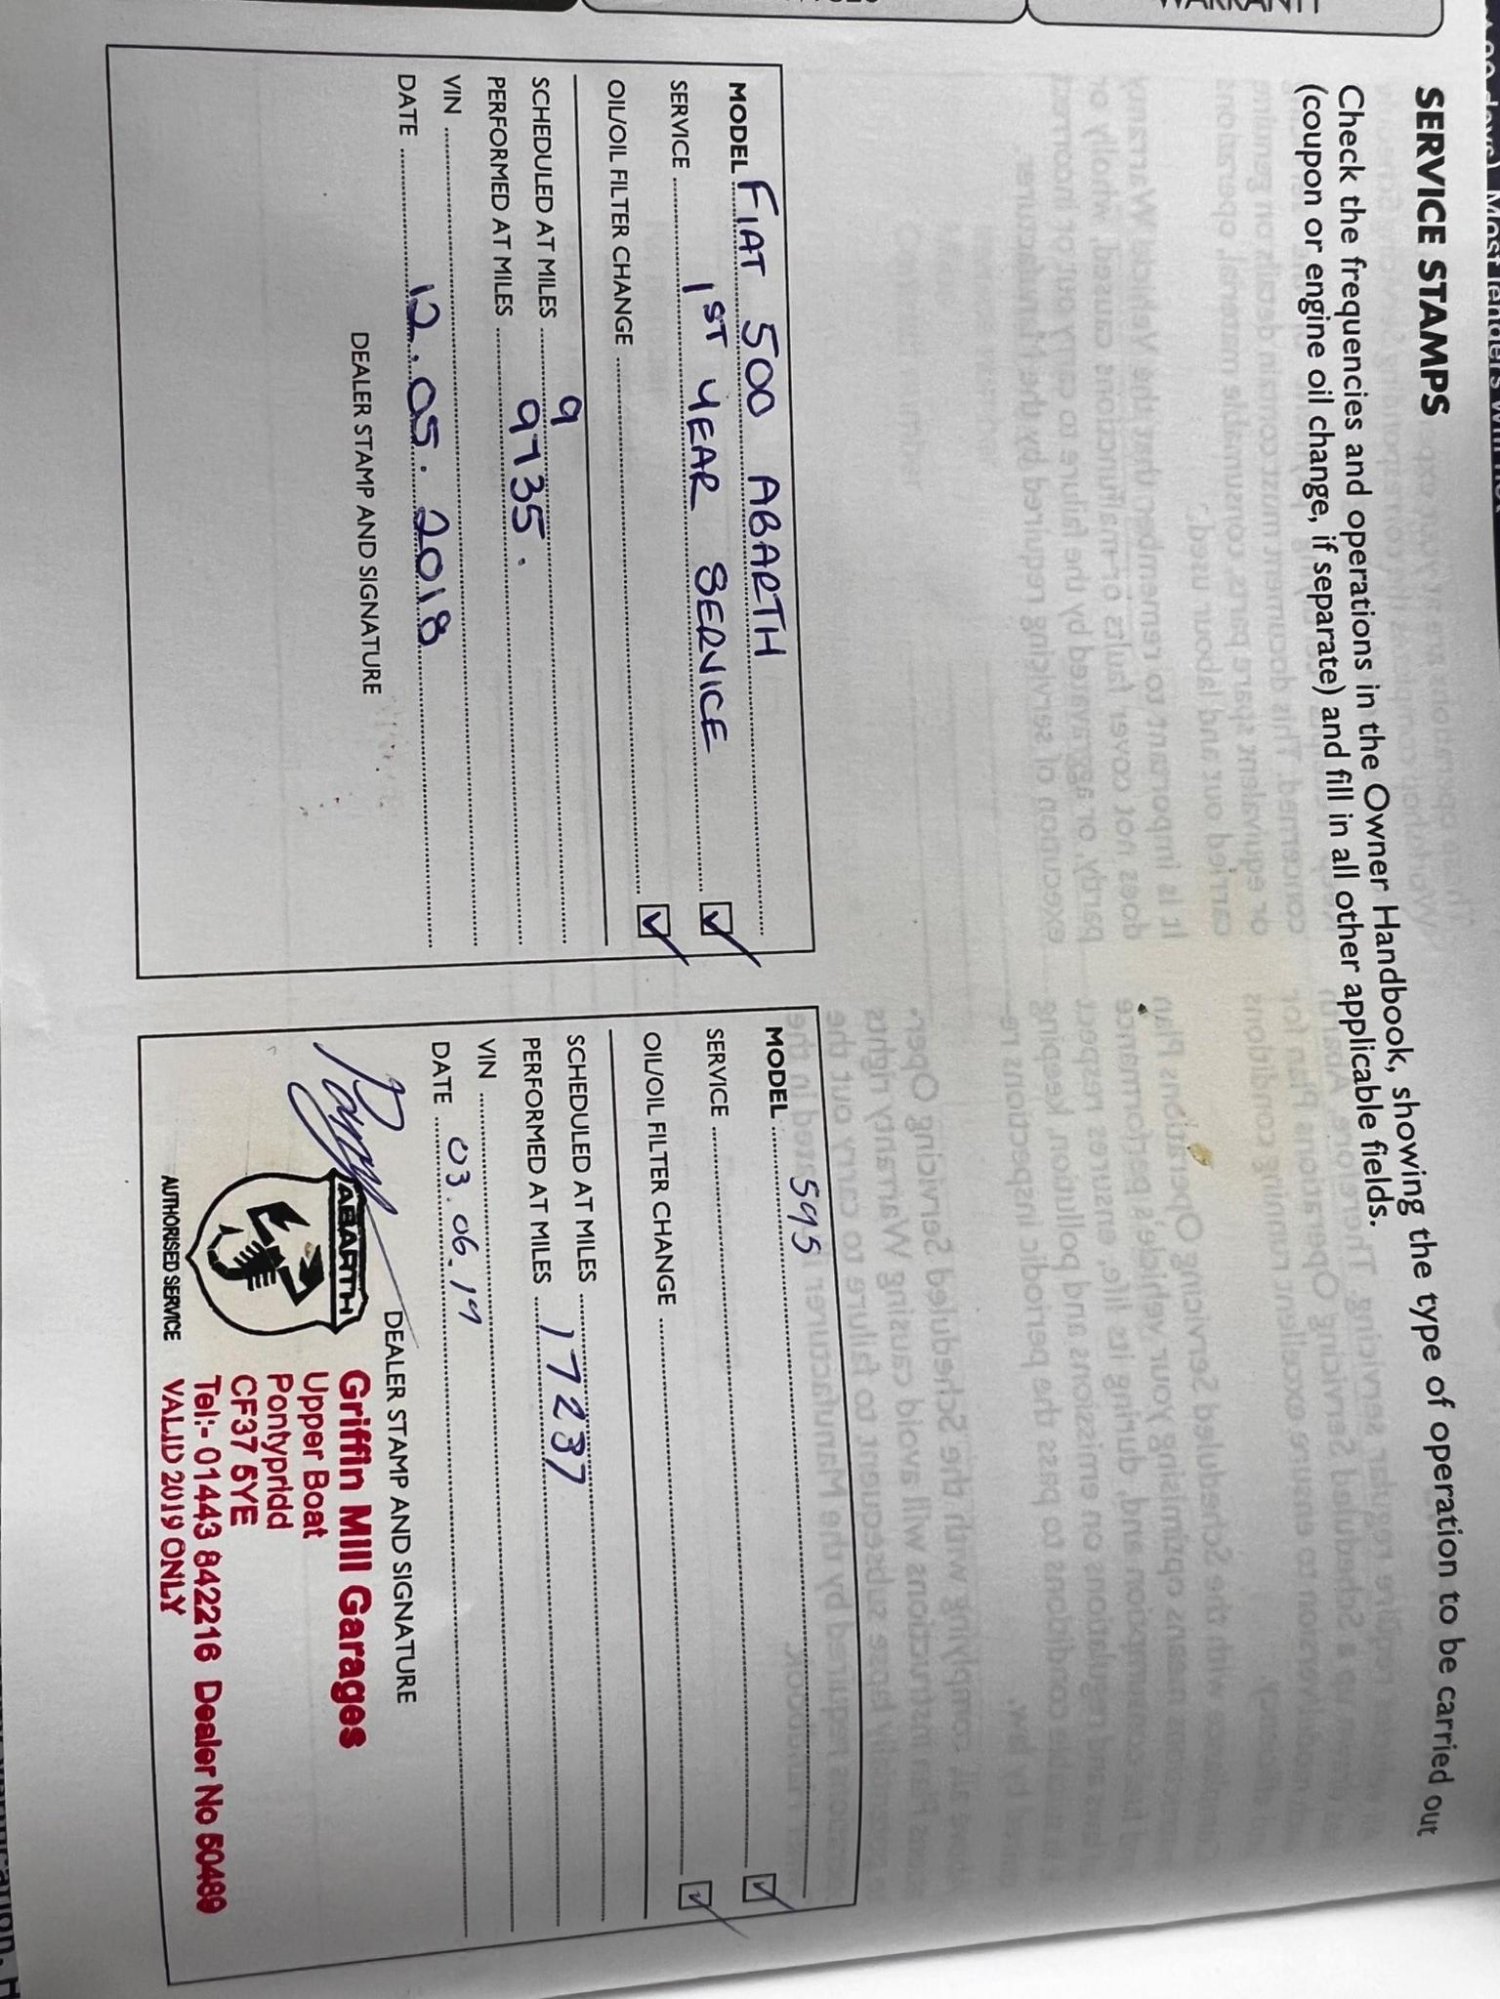 SERVICE STAMPS
Check the frequencies and operations in the Owner Handbook, showing the type of operation to be carried out
(coupon or engine oil change, if separate) and fill in all other applicable fields.
MODEL FIAT 500 ABARTH
SERVICE 1ST YEAR SERVICE
OIL/OIL FILTER CHANGE
SCHEDULED AT MILES 9
PERFORMED AT MILES 9735.
VIN
DATE 12.05.2018
DEALER STAMP AND SIGNATURE
MODEL 595
SERVICE
OIL/OIL FILTER CHANGE
SCHEDULED AT MILES
PERFORMED AT MILES 17237
VIN
DATE 03.06.19
DEALER STAMP AND SIGNATURE
ABARTH
AUTHORISED SERVICE
Griffin Mill Garages
Upper Boat
Pontypridd
CF37 5YE
Tel:- 01443 842216 Dealer No 50489
VALID 2019 ONLY